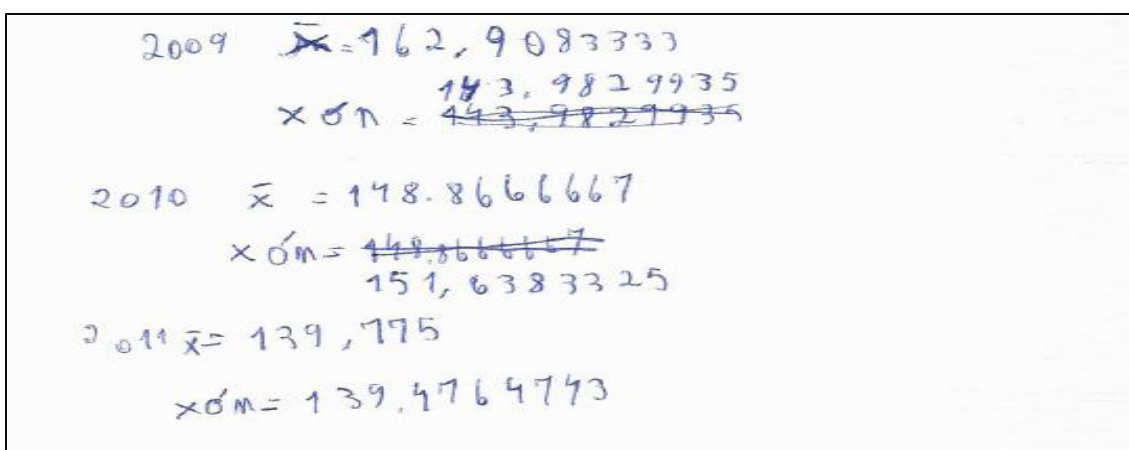 2009 x̄ = 162,9083333
143,9829935
xσn = 143,9829935
2010 x̄ = 148.8666667
xσn = 148,8666667
151,6383325
2011 x̄ = 139,775
xσn = 139,4764743